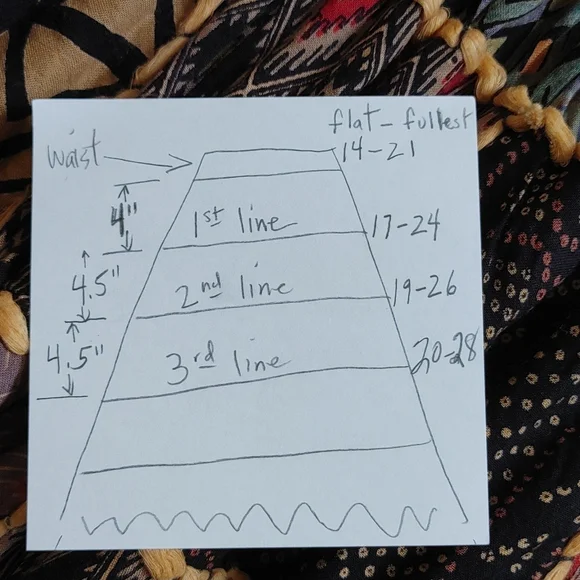 flat - fullest
waist 14-21
4"
1st line 17-24
4.5"
2nd line 19-26
4.5"
3rd line 20-28